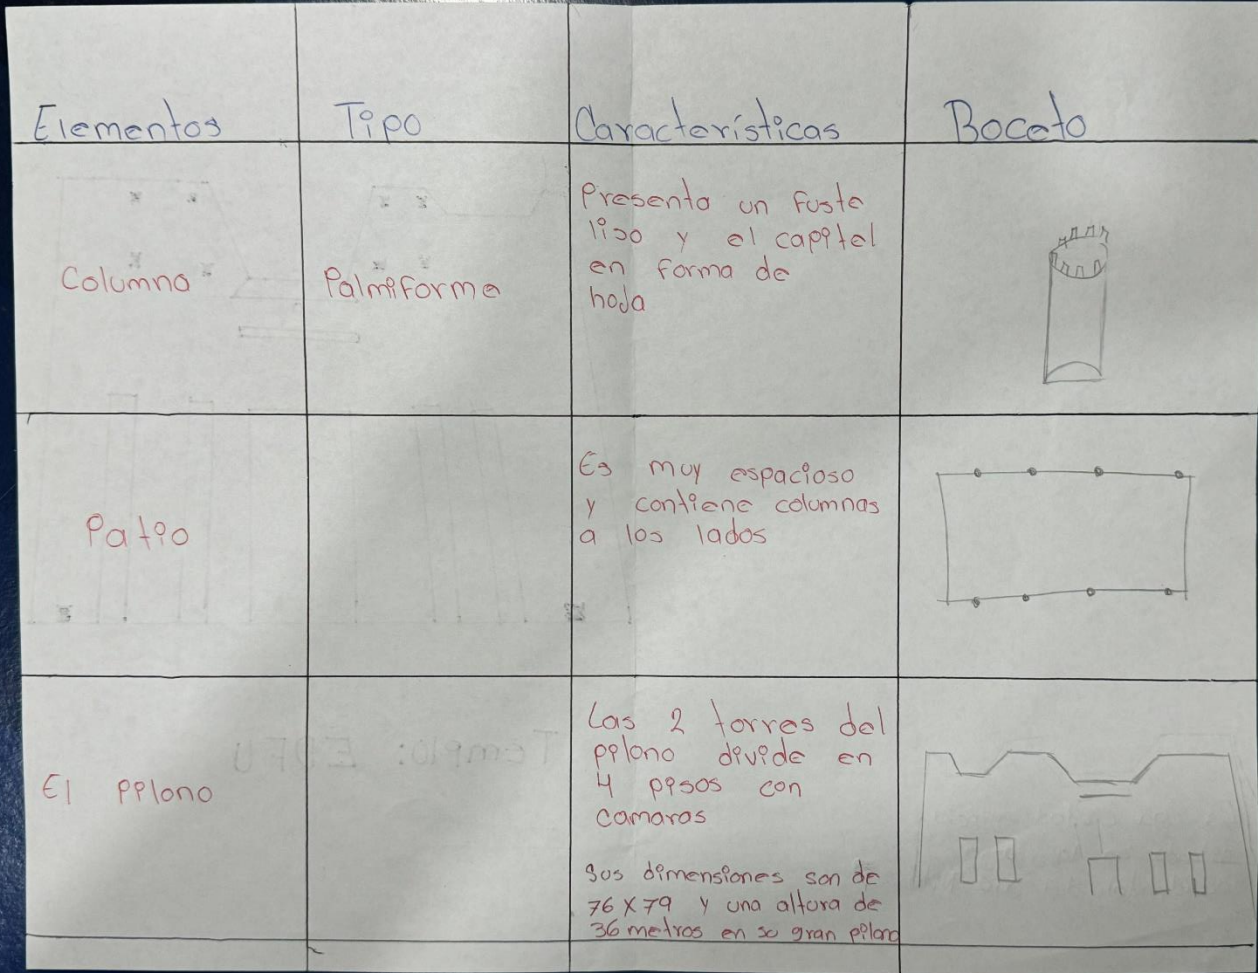 Elementos
Tipo
Características
Boceto
Columna
Palmiforme
Presenta un fuste
liso y el capitel
en forma de
hoja
Patio
Es muy espacioso
y contiene columnas
a los lados
El pilono
Las 2 torres del
pilono divide en
4 pisos con
camaras
Sus dimensiones son de
76x79 y una altura de
36 metros en su gran pilono
Templo: EDFU